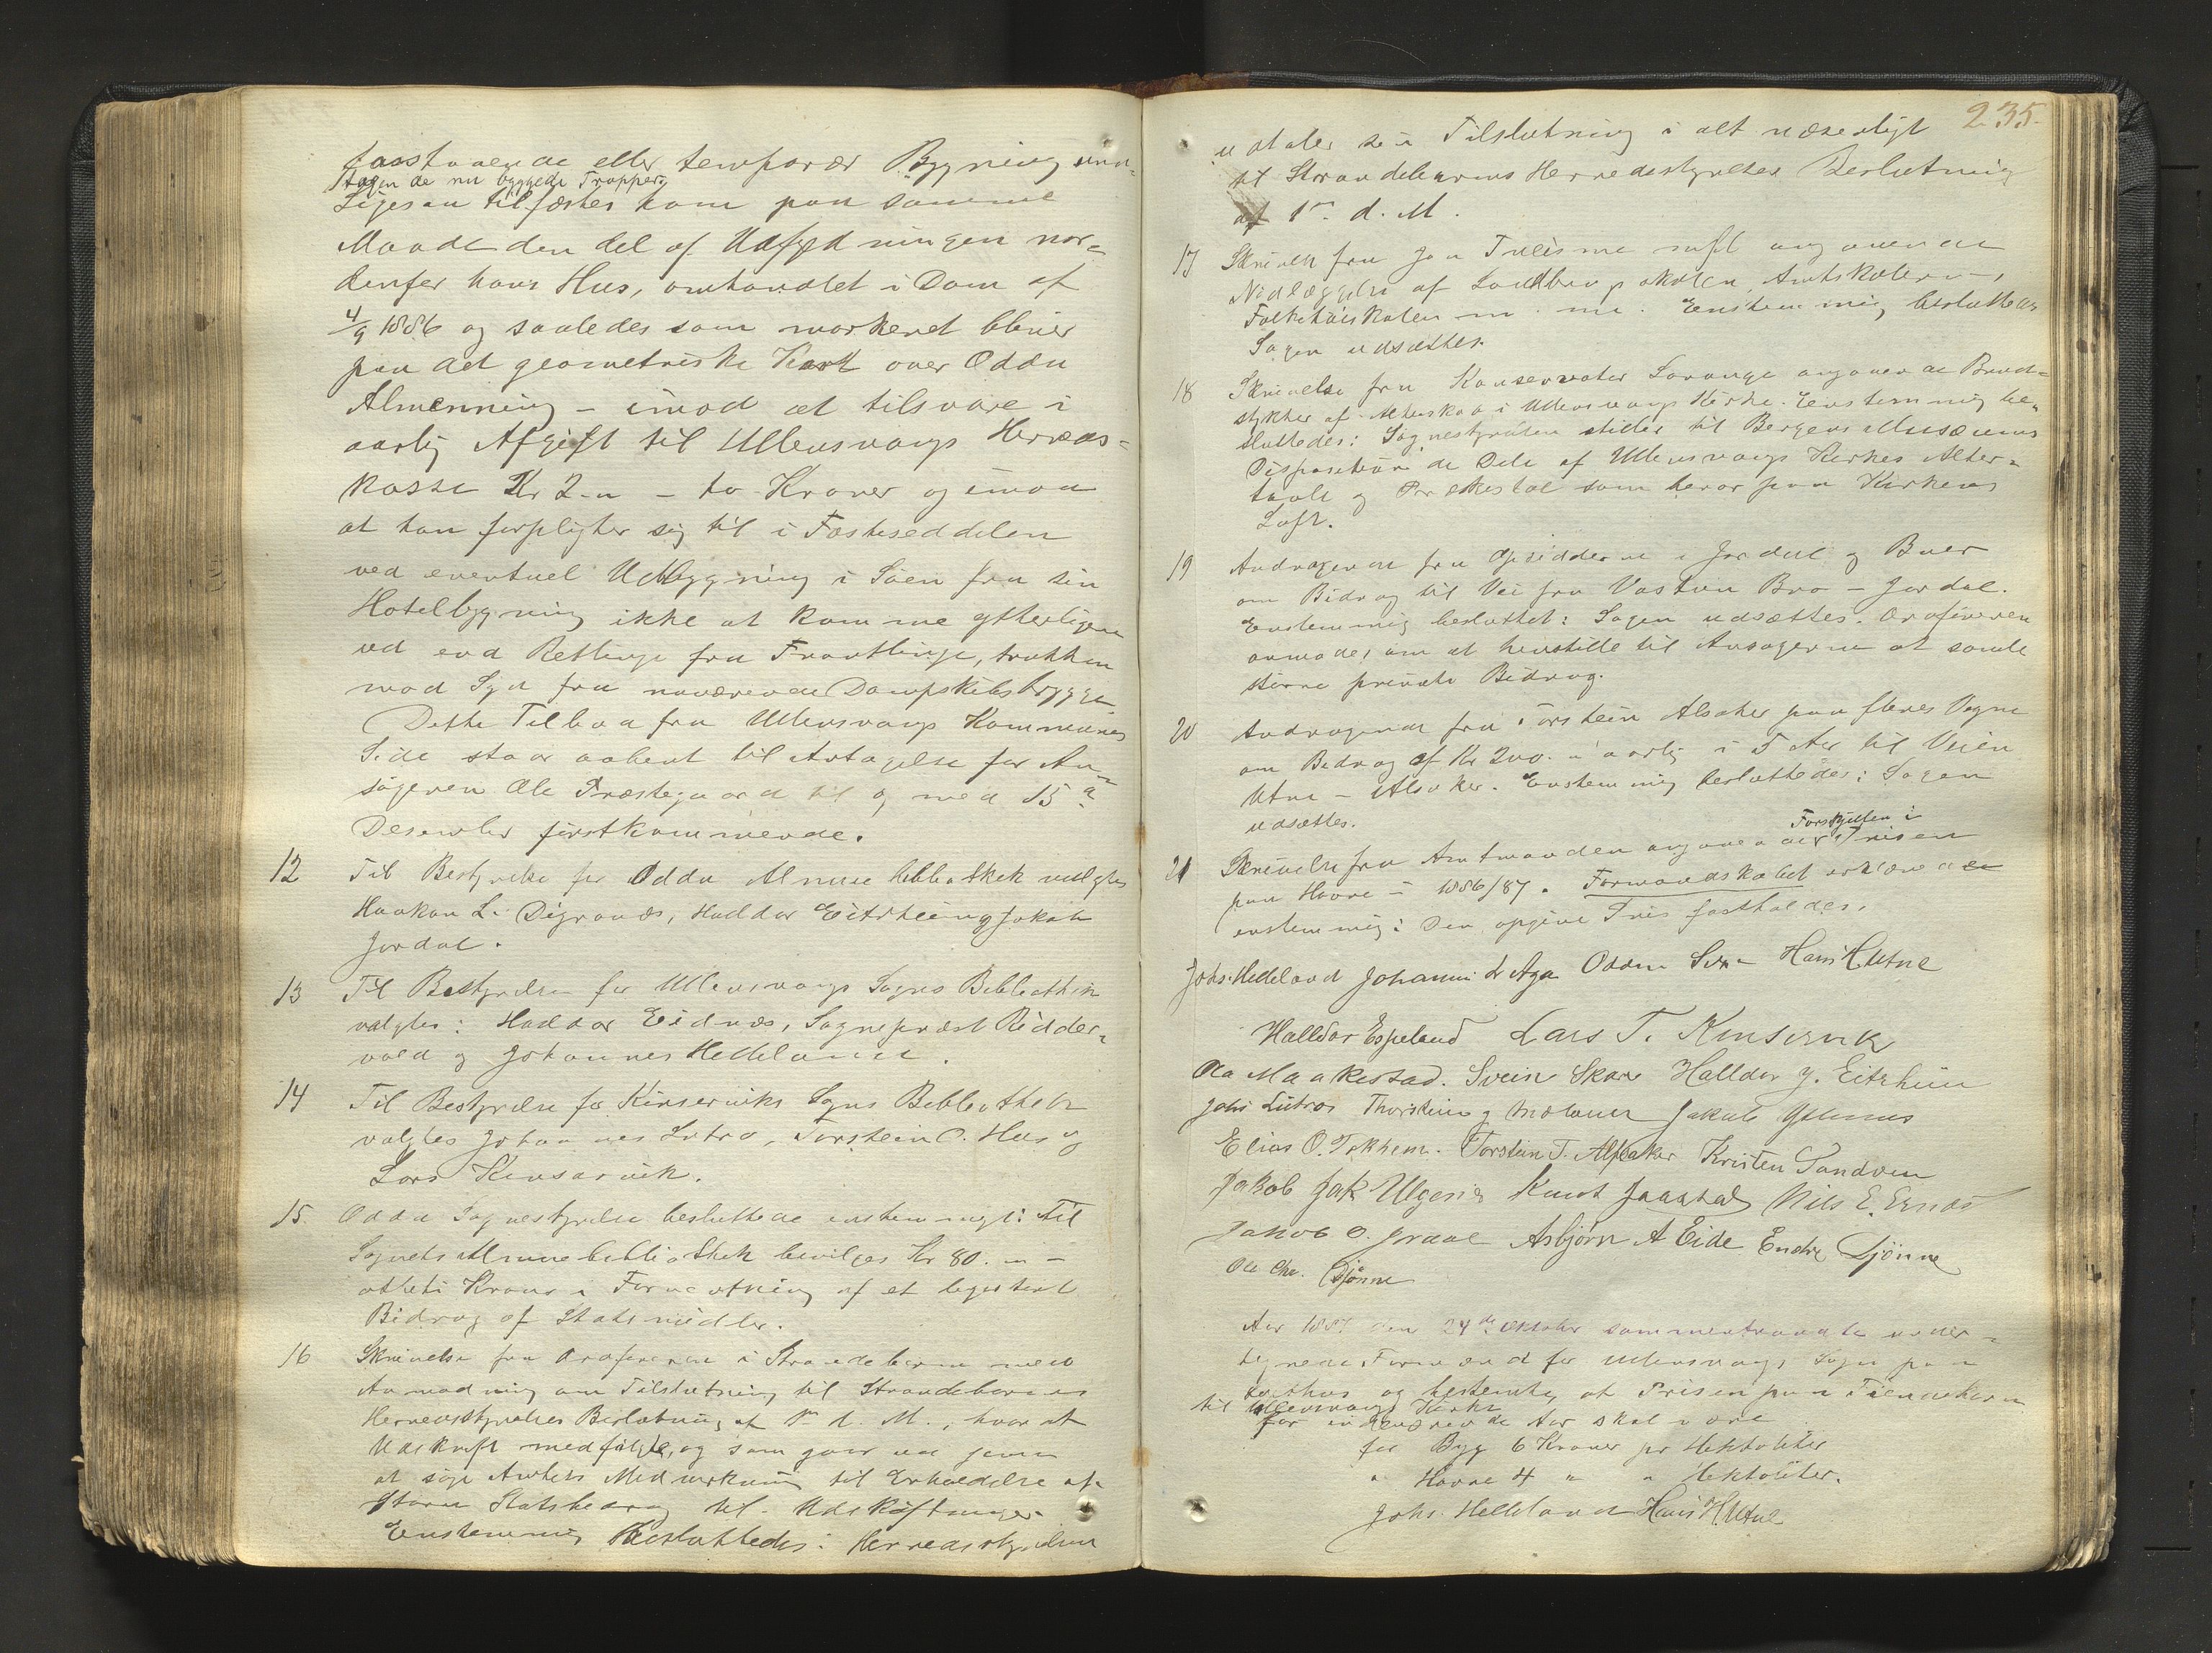 faststaaende eller temporær Bygning und-
tagen de nu byggede Trapper.
Ligesaa tilfæstes ham paa samme
Maade den del af Udfyldningen nor-
denfor hans Hus, omhandlet i Dom af
4/9 1886 og saaledes som markeret bliver
paa det geometriske Kart over Odda
Almenning – imod at tilsvare i
aarlig Afgift til Ullensvangs Herreds-
kasse Kr 2.„ – to Kroner og imod
at han forpligter sig til i Fæsteseddelen
ved eventuel Udbygning i Søen fra sin
Hotelbygning ikke at komme ytterligere
ud end Retlinje fra Frontlinje, trukken
mod Syd fra nuværende Dampskibsbrygge
Dette Tilbud fra Ullensvangs Kommunes
Side staar aabent til Antagelse for An-
søgeren Ole Præstegaard til og med 15de
Desember førstkommende.
12 Til Bestyrelse for Odda Almuebibliothek valgtes
Haakon L. Digranæs, Halldor Eitrheim og Jakob
Jordal.
13 Til Bestyrelse for Ullensvangs Sogns Bibliothek
valgtes: Halldor Eidnæs, Sogneprest Ridder-
vold og Johannes Helleland.
14 Til Bestyrelse for Kinserviks Sogns Bibliothek
valgtes Johannes Lutro, Torstein O. Hus og
Lars Kinsarvik.
15 Odda Sognestyrelse besluttede enstemmigt: Til
Sognets Almuebibliothek bevilges Kr 80.„ –
otteti Kroner i Forventning af et ligestort
Bidrag af Statsmidler.
16 Skrivelse fra Ordføreren i Strandebarm med
Anmodning om Tilslutning til Strandebarms
Herredsstyrelses Beslutning af 1ste d. M., hvoraf
Udskrift medfølgte, og som gaar ud paa
at søge Amtets Medvirkning til Erholdelse af
større Statsbidrag til Udskiftninger.
Enstemmig besluttedes: Herredsstyrelsen
235.
udtaler sin Tilslutning i alt væsentligt
til Strandebarms Herredsstyrelses Beslutning
af 1ste d. M.
17 Skrivelse fra Jon angaaende
Nedlæggelse af Landbrugsskolen, Amtskolerne,
Folkehøiskolen m. m. Enstemmig besluttedes
Sagen udsættes.
18 Skrivelse fra Konservator Lorange angaaende Brud-
stykker af Alterskab i Ullensvangs Kirke. Enstemmig be-
sluttedes: Sognestyrelsen stiller til Bergens Musæums
Disposition de Dele af Ullensvangs Kirkes Alter-
tavle og Prækestol som beror paa Kirkens
Loft.
19 Andragende fra Opsidderne i Jordal og Buer
om Bidrag til Vei fra Vastun Bro – Jordal.
Enstemmig besluttet: Sagen udsættes. Ordføreren
anmodes om at henstille til Ansøgerne at samle
større private Bidrag.
20 Andragende fra Torstein Alsaker paa fleres Vegne
om Bidrag af Kr 200.„ aarlig i 5 Aar til Veien
Utne – Alsaker. Enstemmig besluttedes: Sagen
udsættes.
21 Skrivelse fra Amtmanden angaaende Forskjellen i Prisen
paa Havre i 1886/87. Formandskabet erklærede
enstemmig: Den opgivne Pris fastholdes.
Johs. Helleland Johannes L Aga Oddm Hans H Utne
Halldor Espeland Lars T. Kinservik
Ola Maakestad. Svein Skare Halldor J. Eitrheim
Johs Lutro Thorstein Jakob
Elias O. Tokheim. Torstein T. Alsaker Kristen Sandven
Jakob Jak Ulgenes Knut Jaastad Nils E. Ernes
Jakob O. Jordal Asbjørn A Eide Endre Djönne
Ole Chr. Djönne
Aar 1887 den 24de Oktober sammentraadte under-
tegnede Formænd for Ullensvangs Sogn paa
Lofthus og bestemte, at Prisen paa Tiendekorn
til Ullensvangs Kirke
for indeværende Aar skal være
for Byg 6 Kroner pr Hektoliter
„ Havre 4 „ „ Hektoliter.
Johs. Helleland Hans H. Utne